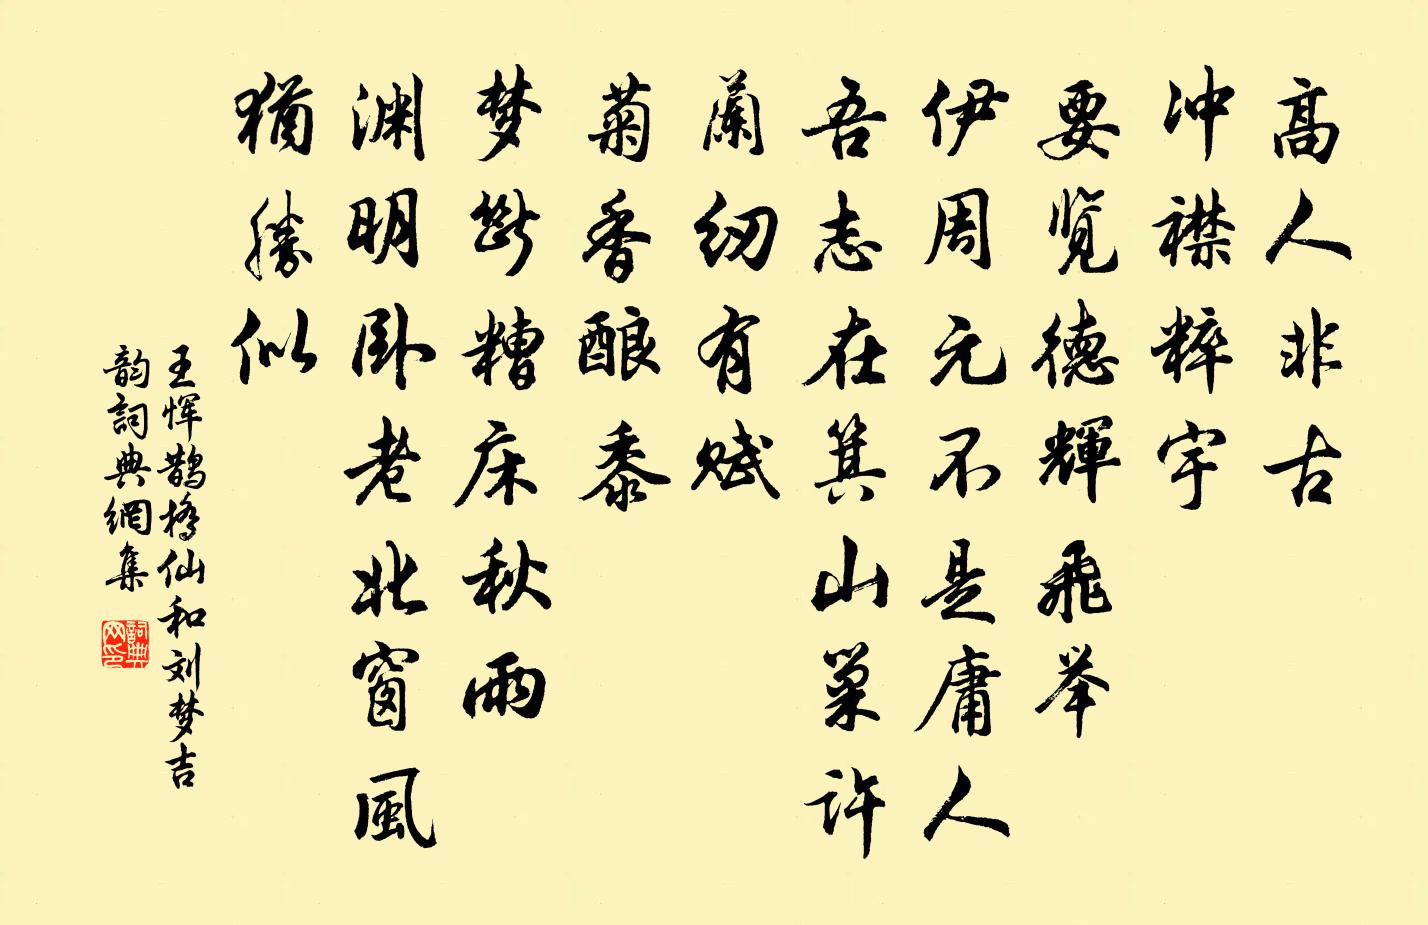 高人非古
冲襟粹宇
要览德輝飛举
伊周元不是庸人
吾志在箕山巢许
蘭纫有赋
菊香酿黍
梦断糟床秋雨
渊明卧老北窗風
猶勝似
王恽鹊橋仙和刘梦吉
韵詞典網集
詞典
网印